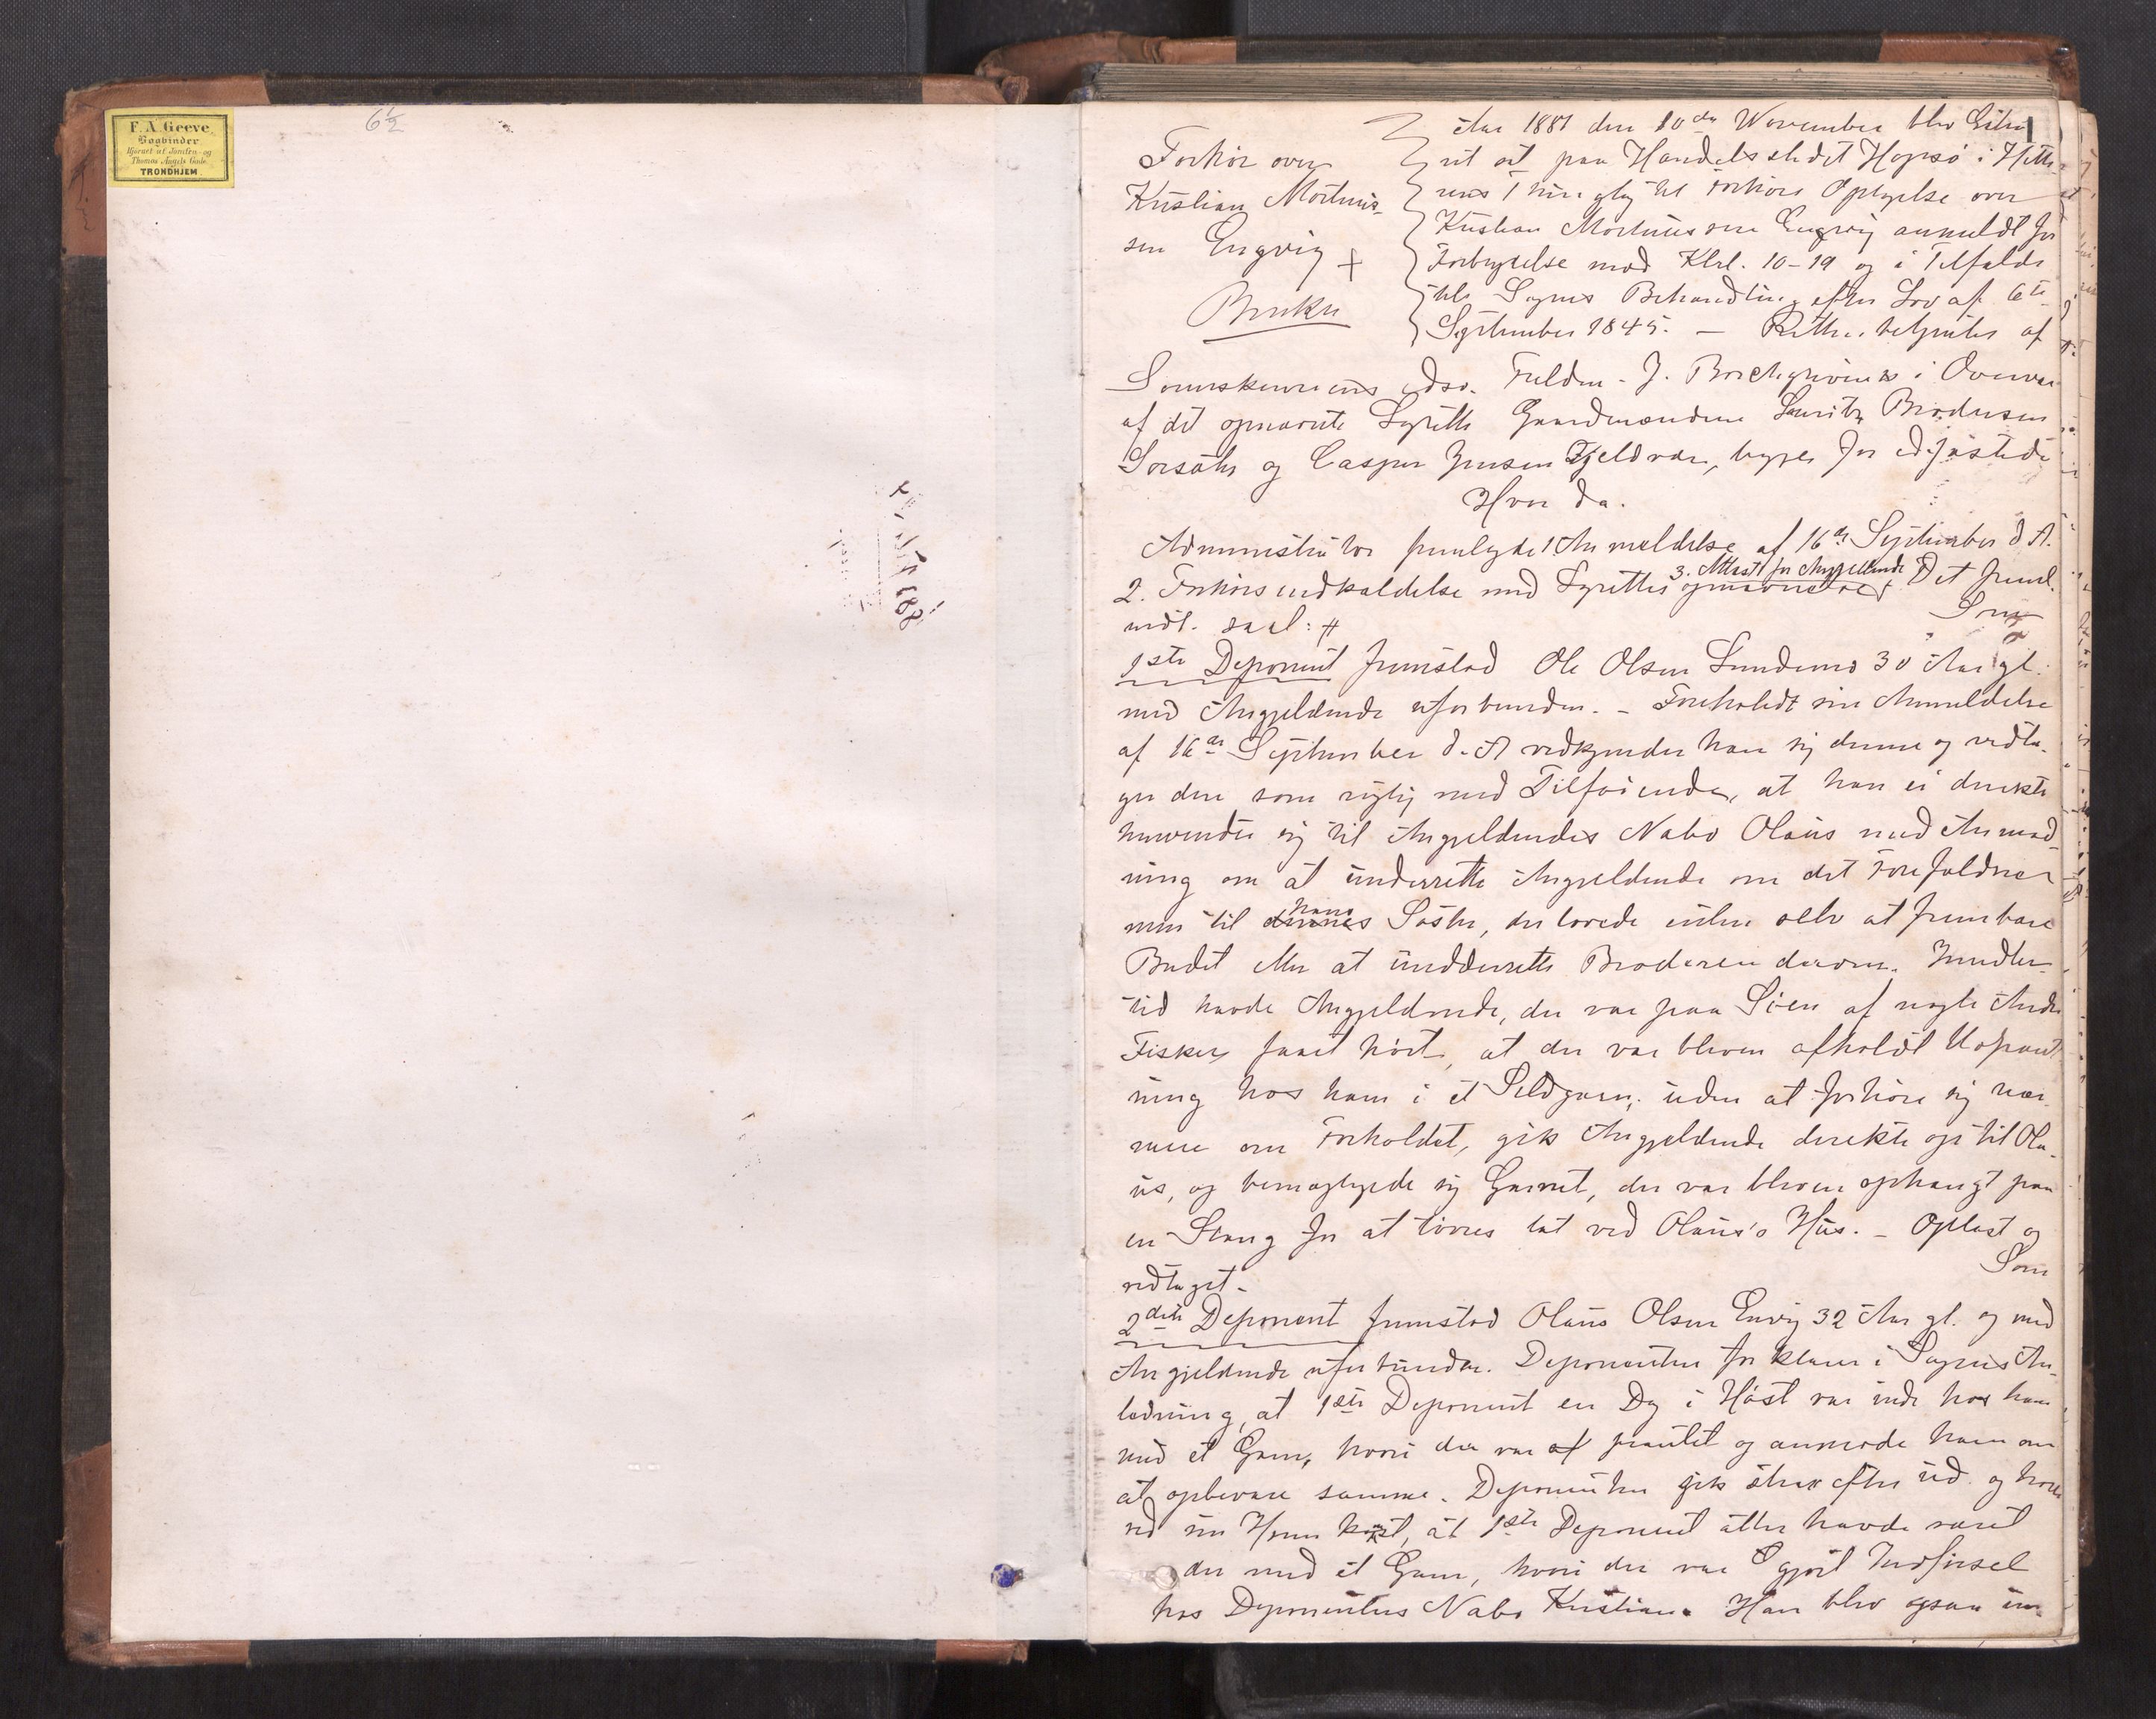 F. A. Greve
Bogbinder
Hjørnet af Jomfru- og
Thomas Angels Gade
TRONDHJEM
6½
1
Aar 1881 den 10de November blev Extra
ret sat paa Handelsstedet Hopsø i Hitte-
rens Thinglag til Forhørs Optagelse over
Kristian Mortinussen Engvig anmeldt for
Forbrydelse mod Klvl. 10-19 og i Tilfælde
til Sagens Behandling efter Lov af 6te
September 1845. — Retten betjentes af
Forhør over
Kristian Mortinus-
sen Engvig +
Bruker
Sorenskriverens edsv. Fuldm. J. Borchgrevink i Overvær
af det opnævnte Lagrette Gaardmændene Lauritz Brodersen
Sørsæter og Casper Jensen Fjeldvær, begge før edfæstede
Hvor da.
Administrator fremlagde 1 Anmeldelse af 16de September d. A.
2. Forhørsindkaldelse med Lagrettes opnævnelse 3. Attest for Angjeldende Det freml.
indt. saal: #
Som
1ste Deponent fremstod Ole Olsen Sundemo 30 Aar gl.
med Angjeldende uforbunden. — Foreholdt sin Anmeldelse
af 16de September d. A vedkjender han sig denne og vedta-
ger den som rigtig med Tilføiende, at han ei direkte
henvendte sig til Angjeldendes Nabo Olaus med Anmod-
ning om at underrette Angjeldende om det Forefaldne
men til dennes hans Søster, der lovede enten selv at frembære
Budet eller at underrette Broderen derom. Imidler-
tid havde Angjeldende, der var paa Søen af nogle Andre
Fiskere faaet hørt, at der var bleven afholdt Udpant-
ning hos ham i et Sildgarn; uden at forhøre sig nær-
mere om Forholdet, gik Angjeldende direkte op til Ola-
us, og bemægtigede sig Garnet, der var bleven ophængt paa
en Stang for at tørres tæt ved Olaus's Hus. — Oplæst og
vedtaget. —
Som
2den Deponent fremstod Olaus Olsen Envig 32 Aar gl. og med
Angjeldende uforbunden. Deponenten forklarer i Sagens An-
ledning, at 1ste Deponent en Dag i Høst var inde hos ham
med et Garn, hvori der var af pantet og anmode ham om
at opbevare samme. Deponenten gik strax efter ud og hørte
ved sin Hjemkomst, at 1ste Deponent atter havde været
der med et Garn, hvori der var gjort Indførsel
hos Deponentens Nabo Kristian. Han blev ogsaa un-